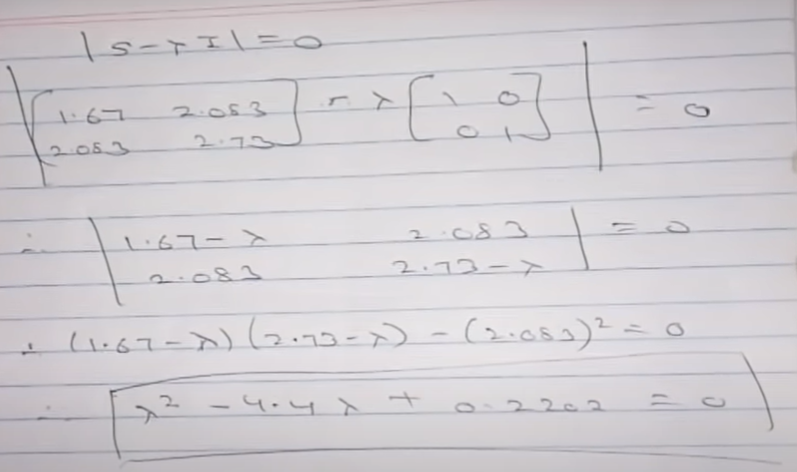 |S-λI| = 0
| [1.67 2.083 - λ [1 0 | = 0
2.083 2.73] 0 1]
∴ | 1.67-λ 2.083 | = 0
2.083 2.73-λ
∴ (1.67-λ) (2.73-λ) - (2.083)² = 0
∴ λ² - 4.4λ + 0.2202 = 0